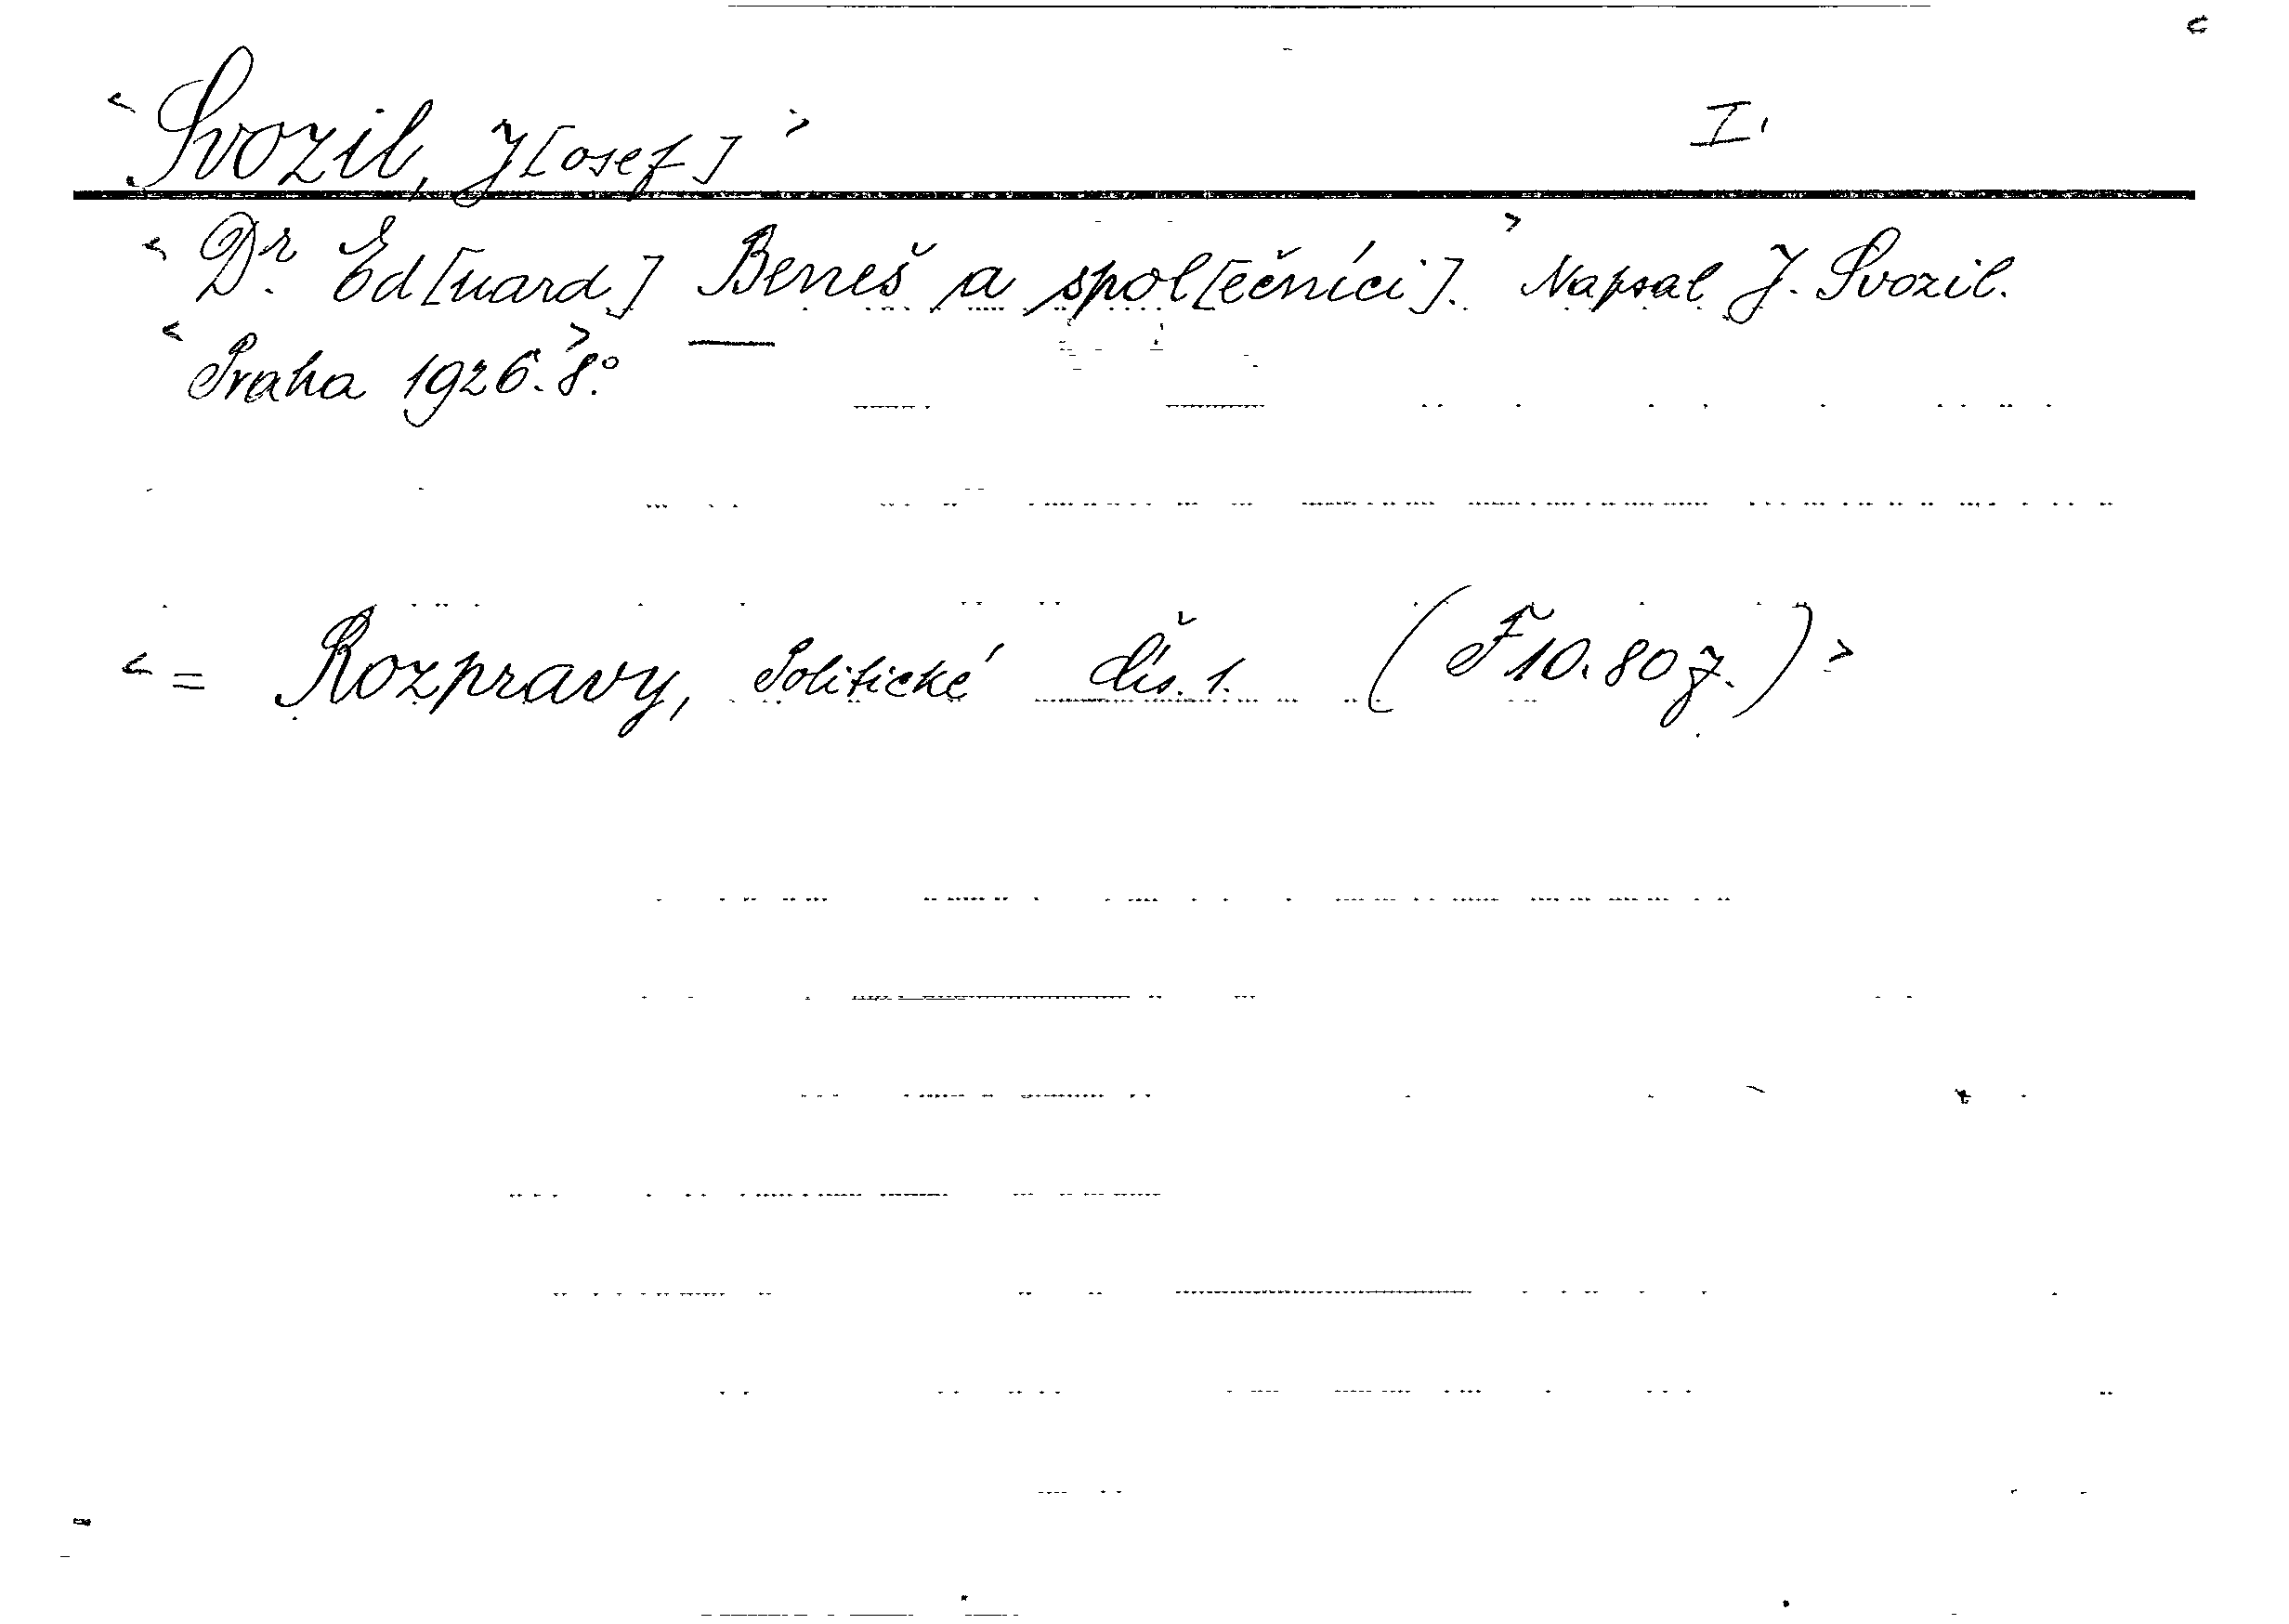 < Svozil, J[osef] > I.
< Dr. Ed[uard] Beneš a spol[ečníci]. > Napsal J. Svozil.
< Praha 1926. > 8°.
< = Rozpravy, Politické čís. 1. (F 10.807.) >